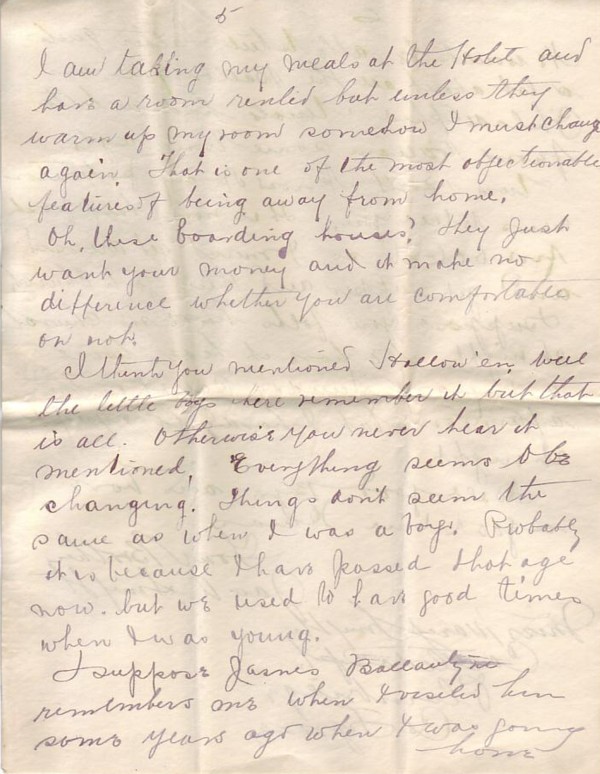 5
I am taking my meals at the Hotel and
have a room rented but unless they
warm up my room somehow I must change
again. That is one of the most objectionable
features of being away from home.
Oh, these boarding houses! They just
want your money and it make no
difference whether you are comfortable
or not.
I think you mentioned Hallow'en, well
the little boys here remember it but that
is all. Otherwise you never hear it
mentioned. Everything seems to be
changing. Things don't seem the
same as when I was a boy. Probably
it is because I have passed that age
now. but we used to have good times
when I was young.
I suppose James Ballantyne
remembers me when I visited him
some years ago when I was going
home